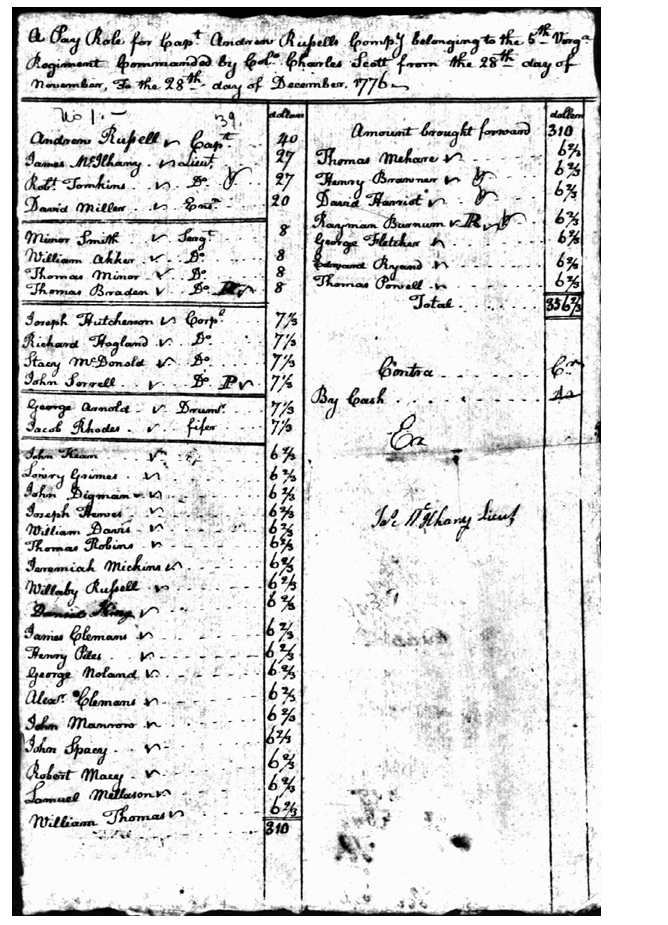 A Pay Role for Capt Andrew Russells Compy belonging to the 5th Virga
Regiment Commanded by Colo Charles Scott from the 28th day of
November, To the 28th day of December. 1776
No 1
139
dollars
Andrew Russell Capt 40
James McIlhany Lieut 27
Robt Tomkins Do 27
David Miller Ensn 20
Minor Smith Sergt 8
William Akker Do 8
Thomas Minor Do 8
Thomas Braden Do 8
Joseph Hutcherson Corpl 7⅓
Richard Hogland Do 7⅓
Stacy McDonald Do 7⅓
John Sorrell Do P 7⅓
George Arnold Drumr 7⅓
Jacob Rhodes fifer 7⅓
John Keam 6⅔
Lowry Grimes 6⅔
John Digman 6⅔
Joseph Hewes 6⅔
William Davis 6⅔
Thomas Robins 6⅔
Jeremiah Mickins 6⅔
Willaby Russell 6⅔
Daniel King 6⅔
James Clemans 6⅔
Henry Piles 6⅔
George Noland 6⅔
Alexr Clemans 6⅔
John Manrow 6⅔
John Spacy 6⅔
Robert Macy 6⅔
Samuel Mellason 6⅔
William Thomas 6⅔
310
dollars
Amount brought forward 310
Thomas Mehare 6⅔
Henry Brawner 6⅔
David Harriot 6⅔
Rayman Burnum R 6⅔
George Fletcher 6⅔
Edward Ryand 6⅔
Thomas Powell 6⅔
Total 356⅔
Contra Cr
By Cash
Ex
Jas McIlhany Lieut